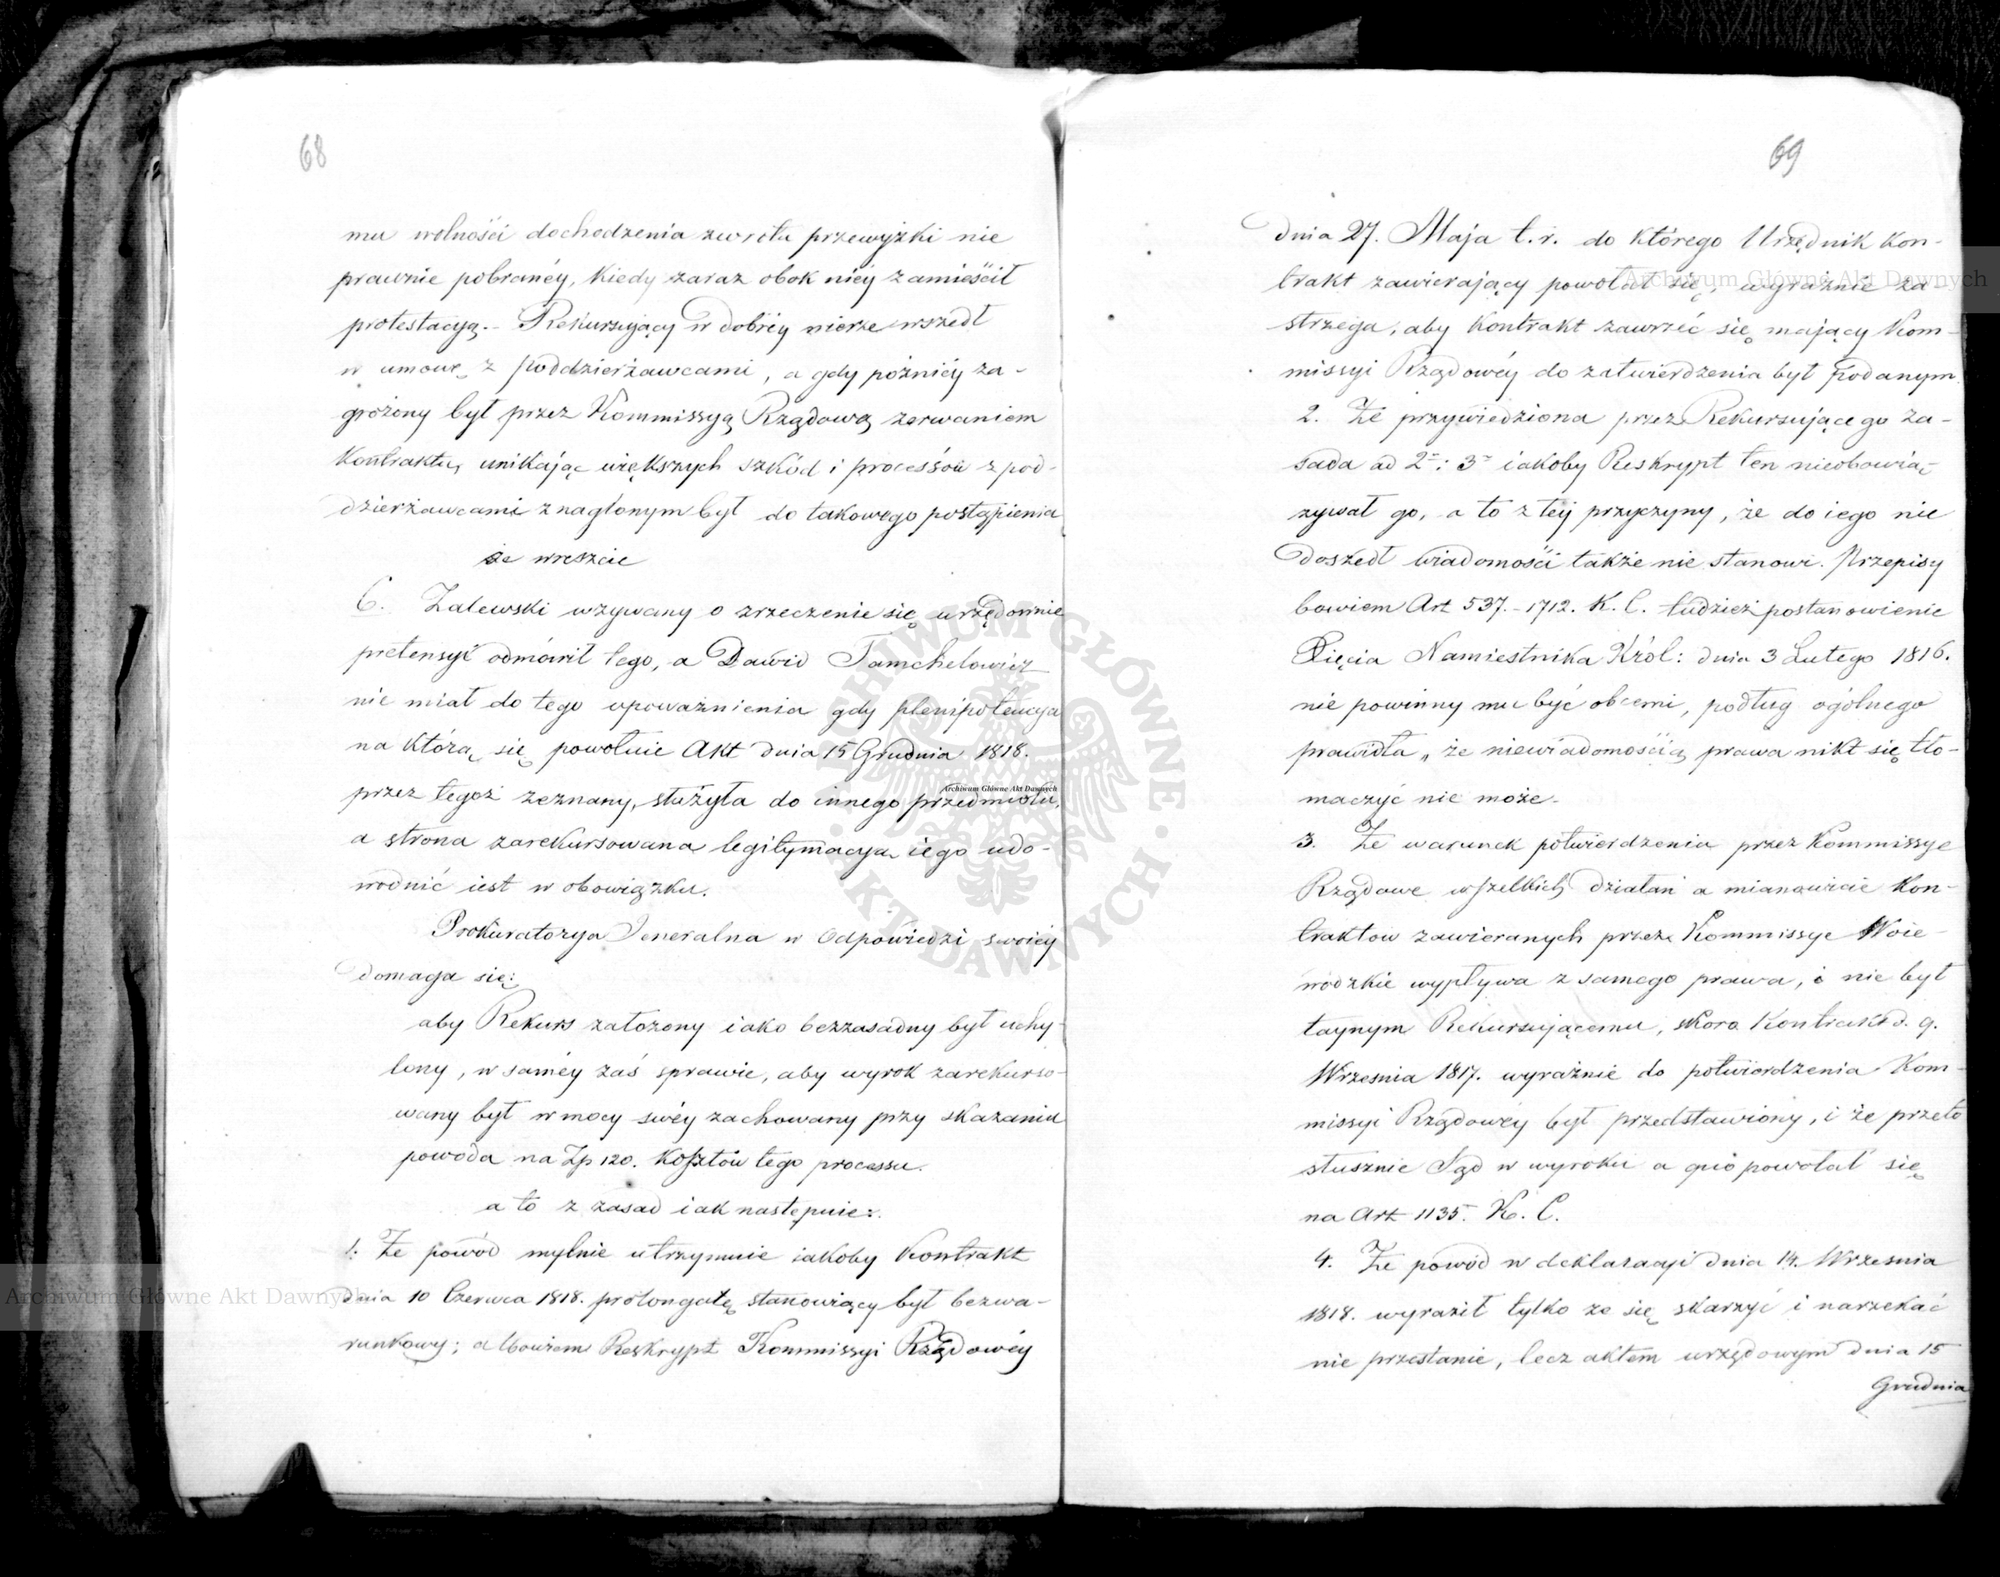 68
mu wolności dochodzenia zwrotu przewyżki nie
prawnie pobranéy, kiedy zaraz obok niéy zamieścił
protestacyą. - Rekursuiący w dobréy wierze wszedł
w umowę z poddzierżawcami, a gdy późniéy za-
grożony był przez Kommissyą Rządową zerwaniem
Kontraktu, unikaiąc większych szkód i processów z pod-
dzierżawcami znaglonym był do takowego postąpienia
że wreszcie
6. Zalewski wzywany o zrzeczenie się urzędownie
pretensyi odmówił tego, a Dawid Tamchelowicz
nie miał do tego upoważnienia gdy plenipotencya
na którą się powołuie Akt dnia 15 Grudnia 1818.
przez tegoż zeznany, służyła do innego przedmiotu,
a strona zarekursowana legitymacyą iego udo-
wodnić iest w obowiązku.
Prokuratorya Jeneralna w Odpowiedzi swoiéy
domaga się:
aby Rekurs założony iako bezzasadny był uchy-
lony, w saméy zaś sprawie, aby wyrok zarekurso-
wany był w mocy swéy zachowany przy skazaniu
powoda na Zp 120. Kosztów tego processu.
a to z zasad iak następuie:
1. Że powód mylnie utrzymuie iakoby Kontrakt
dnia 10 Czerwca 1818. prolongatę stanowiący był bezwa-
runkowy; albowiem Reskrypt Kommissyi Rządowéy
69
dnia 27. Maja t. r. do którego Urzędnik kon-
trakt zawierający powołał się, wyraźnie za-
strzega, aby Kontrakt zawrzeć się mający Kom-
missyi Rządowéy do zatwierdzenia był podanym.
2. Że przywiedziona przez Rekursującego za-
sada ad 2 i 3 iakoby Reskrypt ten nieobowią-
zywał go, a to z téy przyczyny, że do iego nie
doszedł wiadomości także nie stanowi. Przepisy
bowiem Art 537. - 1712. K. C. tudzież postanowienie
Xięcia Namiestnika Król: dnia 3 Lutego 1816.
nie powinny mu być obcemi, podług ogólnego
prawidła „ że niewiadomością prawa nikt się tło-
maczyć nie może.
3. Że warunek potwierdzenia przez Kommissye
Rządowe wszelkich działań a mianowicie Kon-
traktów zawieranych przez Kommissye Woie-
wodzkie wypływa z samego prawa, i nie był
taynym Rekursującemu, skoro Kontrakt d. 9.
Września 1817. wyraźnie do potwierdzenia Kom-
missyi Rządowéy był przedstawiony, i że przeto
słusznie Sąd w wyroku a quo powołał się
na Art 1135. K. C.
4. Że powód w deklaracyi dnia 14. Września
1818. wyraził tylko że się skarżyć i narzekać
nie przestanie, lecz aktem urzędowym dnia 15
Grudnia
Archiwum Główne Akt Dawnych
Archiwum Główne Akt Dawnych
Archiwum Główne Akt Dawnych
ARCHIWUM GŁÓWNE
AKT DAWNYCH